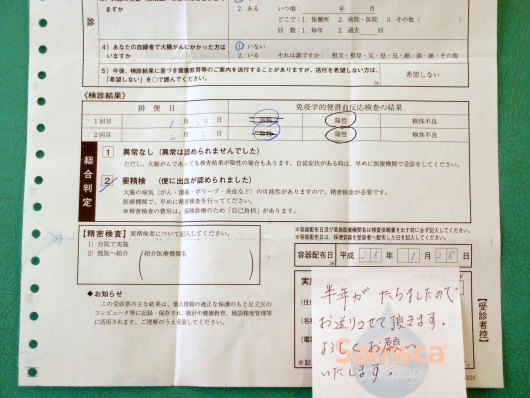 ますか
2. ある
いつ頃: 年 月
どこで：1. 保健所 2. 病院・医院 3. その他（ ）
回 数：1. 毎年 2. 過去 回
診
4）あなたの血縁者で大腸がんにかかった方は
いますか
1 いない
2. いる
それは誰ですか：祖父・祖母・父・母・兄・姉・弟・妹・その他
5）今後、検診結果に基づき健康教育等のご案内を送付することがありますが、送付を希望しない方は、
「希望しない」を○で囲んでください。
希望しない
〈検診結果〉
排 便 日
免疫学的便潜血反応検査の結果
1回目 1 月 日 陰性 陽性 検体不良
2回目 2 月 3 日 陰性 陽性 検体不良
総合判定
1 異常なし（異常は認められませんでした）
ただし、大腸がんであっても検査結果が陰性の場合もあります。自覚症状がある時は、早めに医療機関で受診をしてください。
2 要精検 （便に出血が認められました）
大腸の病気（がん・潰瘍・ポリープ・炎症など）の可能性がありますので、精密検査が必要です。
医療機関で、早めに精密検査を行ってください。
※精密検査の費用は、保険診療のため「自己負担」があります。
【精密検査】要精検者について記入してください。
1）自院で実施
2）他院へ紹介
紹介医療機関名
※容器配布日及び実施医療機関名は検査依頼書を出す前に必ず記入してください。
※容器配布日は、採便容器を受診者へ配布した日を記入してください。
容器配布日 平成 26 年 1 月 28 日
◆お知らせ
この受診票の主な結果は、個人情報の適正な保護のもと足立区の
コンピュータ等に記録・保存され、統計や健康教育、検診精度管理等
に活用されます。ご理解のうえ受診してください。
【受診者控】
半年が たちましたので
お送りさせて頂きます。
よろしくお願い
いたします。
Samsca